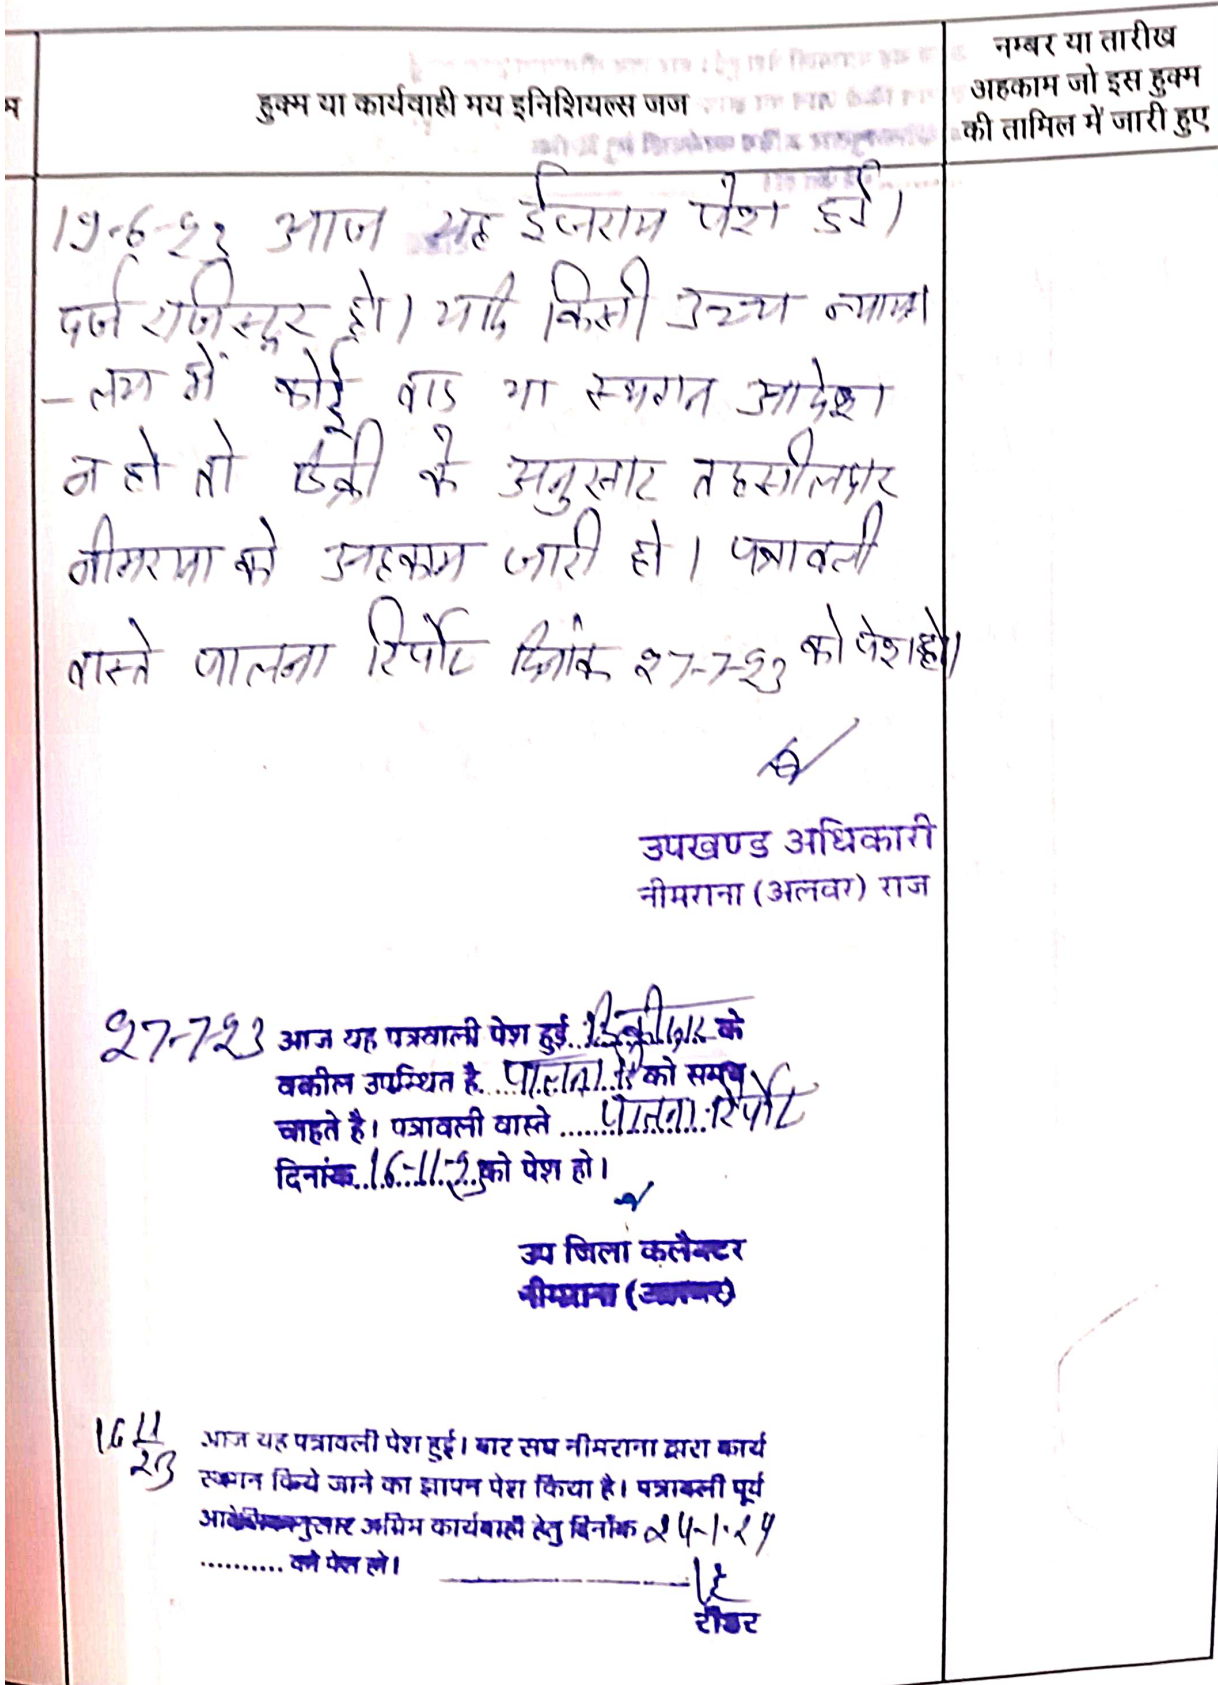 हुक्म या कार्यवाही मय इनिशियल्स जज
नम्बर या तारीख
अहकाम जो इस हुक्म
की तामिल में जारी हुए
19-6-23 आज यह ईजराय पेश हुई।
दर्ज रजिस्टर हो। यदि किसी उच्च न्याया
-लय में कोई वाद या स्थगन आदेश
न हो तो डिक्री के अनुसार तहसीलदार
नीमराना को अहकाम जारी हो। पत्रावली
वास्ते पालना रिर्पोट दिनांक 27-7-23 को पेश हो।
उपखण्ड अधिकारी
नीमराना (अलवर) राज
27-7-23 आज यह पत्रवाली पेश हुई. डिक्रीदार के
वकील उपस्थित है. पालना को समय
चाहते है। पत्रावली वास्ते ..... पालना रिर्पोट
दिनांक. 16-11-23 को पेश हो।
उप जिला कलैक्टर
नीमराना (अलवर)
16 11/23 आज यह पत्रावली पेश हुई। बार संघ नीमराना द्वारा कार्य
स्थगन किये जाने का ज्ञापन पेश किया है। पत्रावली पूर्व
अग्रिम कार्यवाही हेतु दिनाँक 24-1-24
.......... को पेश हो।
रीडर